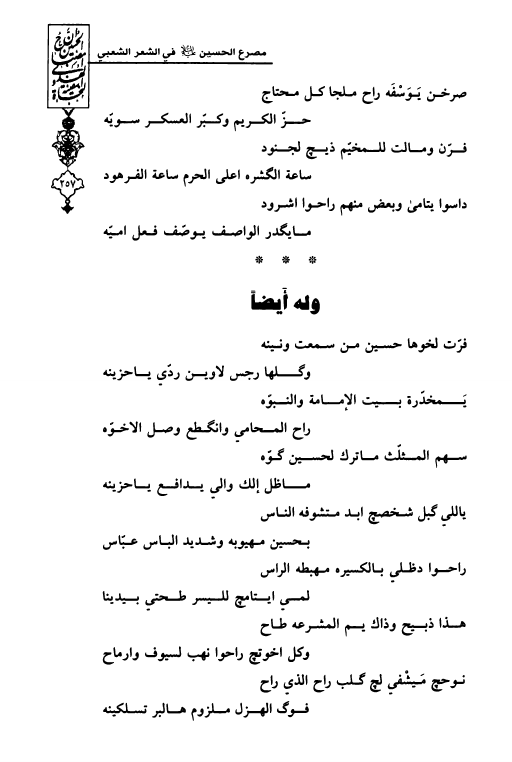 مصرع الحسين في الشعر الشعبي
٢٥٧
صرخن يَوَسْفَه راح ملجا كل محتاج
حزّ الكريم وكبّر العسكر سويّه
فرّن ومالت للمخيّم ذيچ لجنود
ساعة الگشره اعلى الحرم ساعة الفرهود
داسوا يتامىٰ وبعض منهم راحوا اشرود
مايگدر الواصف يوصّف فعل اميّه
* * *
وله أيضاً
فرّت لخوها حسين من سمعت ونينه
وگلها رجس لاوين ردّي ياحزينه
يَمخدّرة بيت الإمامة والنبوّه
راح المحامي وانگطع وصل الاخوّه
سهم المثلّث ماترك لحسين گوّه
ماظل إلك والي يدافع ياحزينه
ياللي گبل شخصچ ابد متشوفه الناس
بحسين مهيوبه وشديد الباس عبّاس
راحوا دظلي بالكسيره مهبطه الراس
لمي ايتامچ لليسر طحتي بيدينا
هذا ذبيح وذاك يم المشرعه طاح
وكل اخوتچ راحوا نهب لسيوف وارماح
نوحچ مَيشْفي لچ گلب راح الذي راح
فوگ الهزل ملزوم هالبر تسلكينه